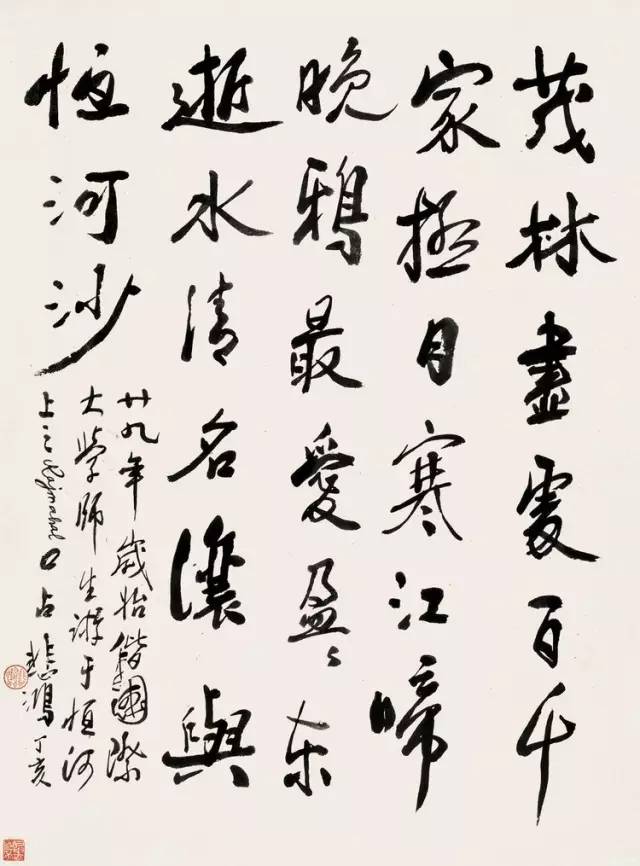 茂林盡處百千
家極目寒江啼
晚鴉最愛盈〻東
逝水清名瀼與
恆河沙
廿九年歲始偕國際
大學師生游于恒河
上之Rajmahal口占 悲鴻 丁亥